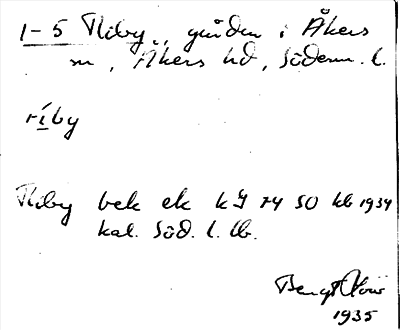 1-5 Riby, gården i Åkers
sn, Åkers hd, Söderm. l.
ríby
Riby bek ek kJ 74 50 kb 1934
kal. Söd. l. lb.
Bengt
1935